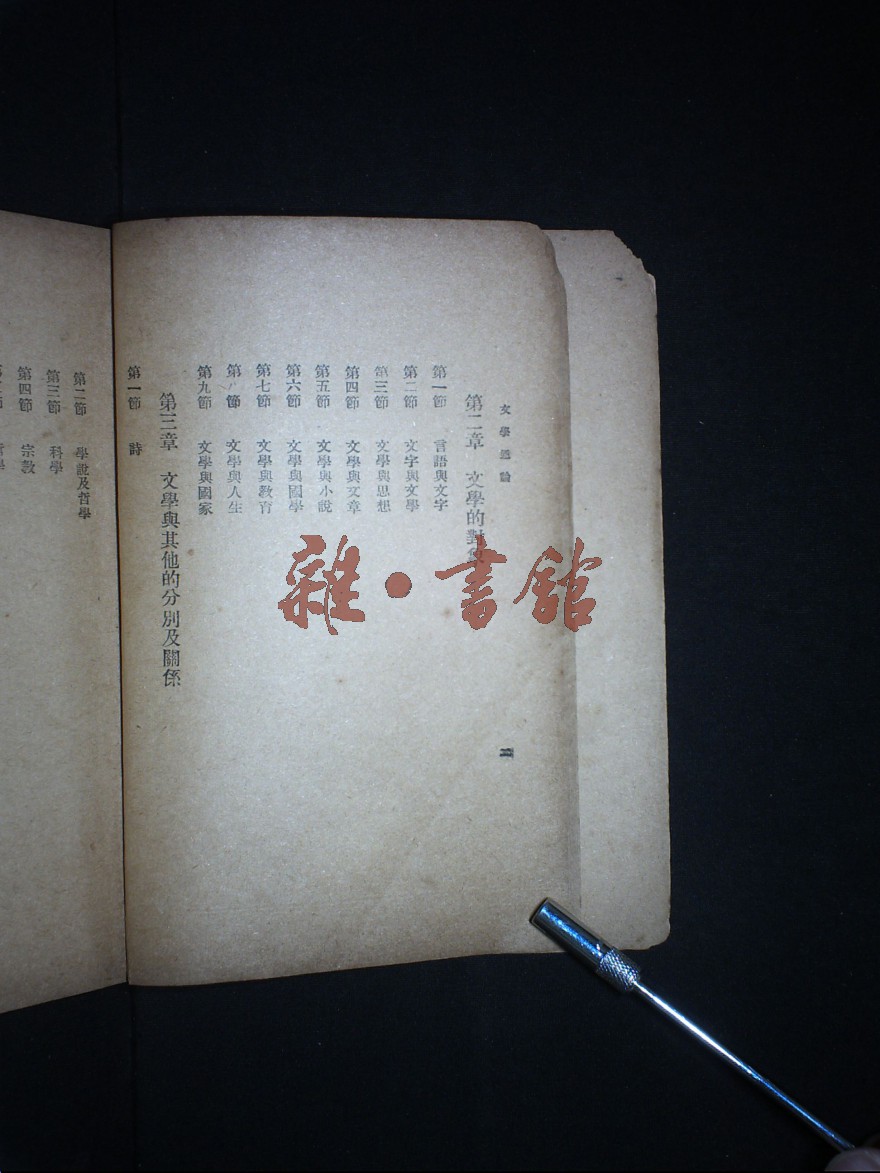 文學通論
第二章 文學的對象
第一節 言語與文字
第二節 文字與文學
第三節 文學與思想
第四節 文學與文章
第五節 文學與小說
第六節 文學與國學
第七節 文學與教育
第八節 文學與人生
第九節 文學與國家
第三章 文學與其他的分別及關係
第一節 詩
第二節 學說及哲學
第三節 科學
第四節 宗教
雜·書館